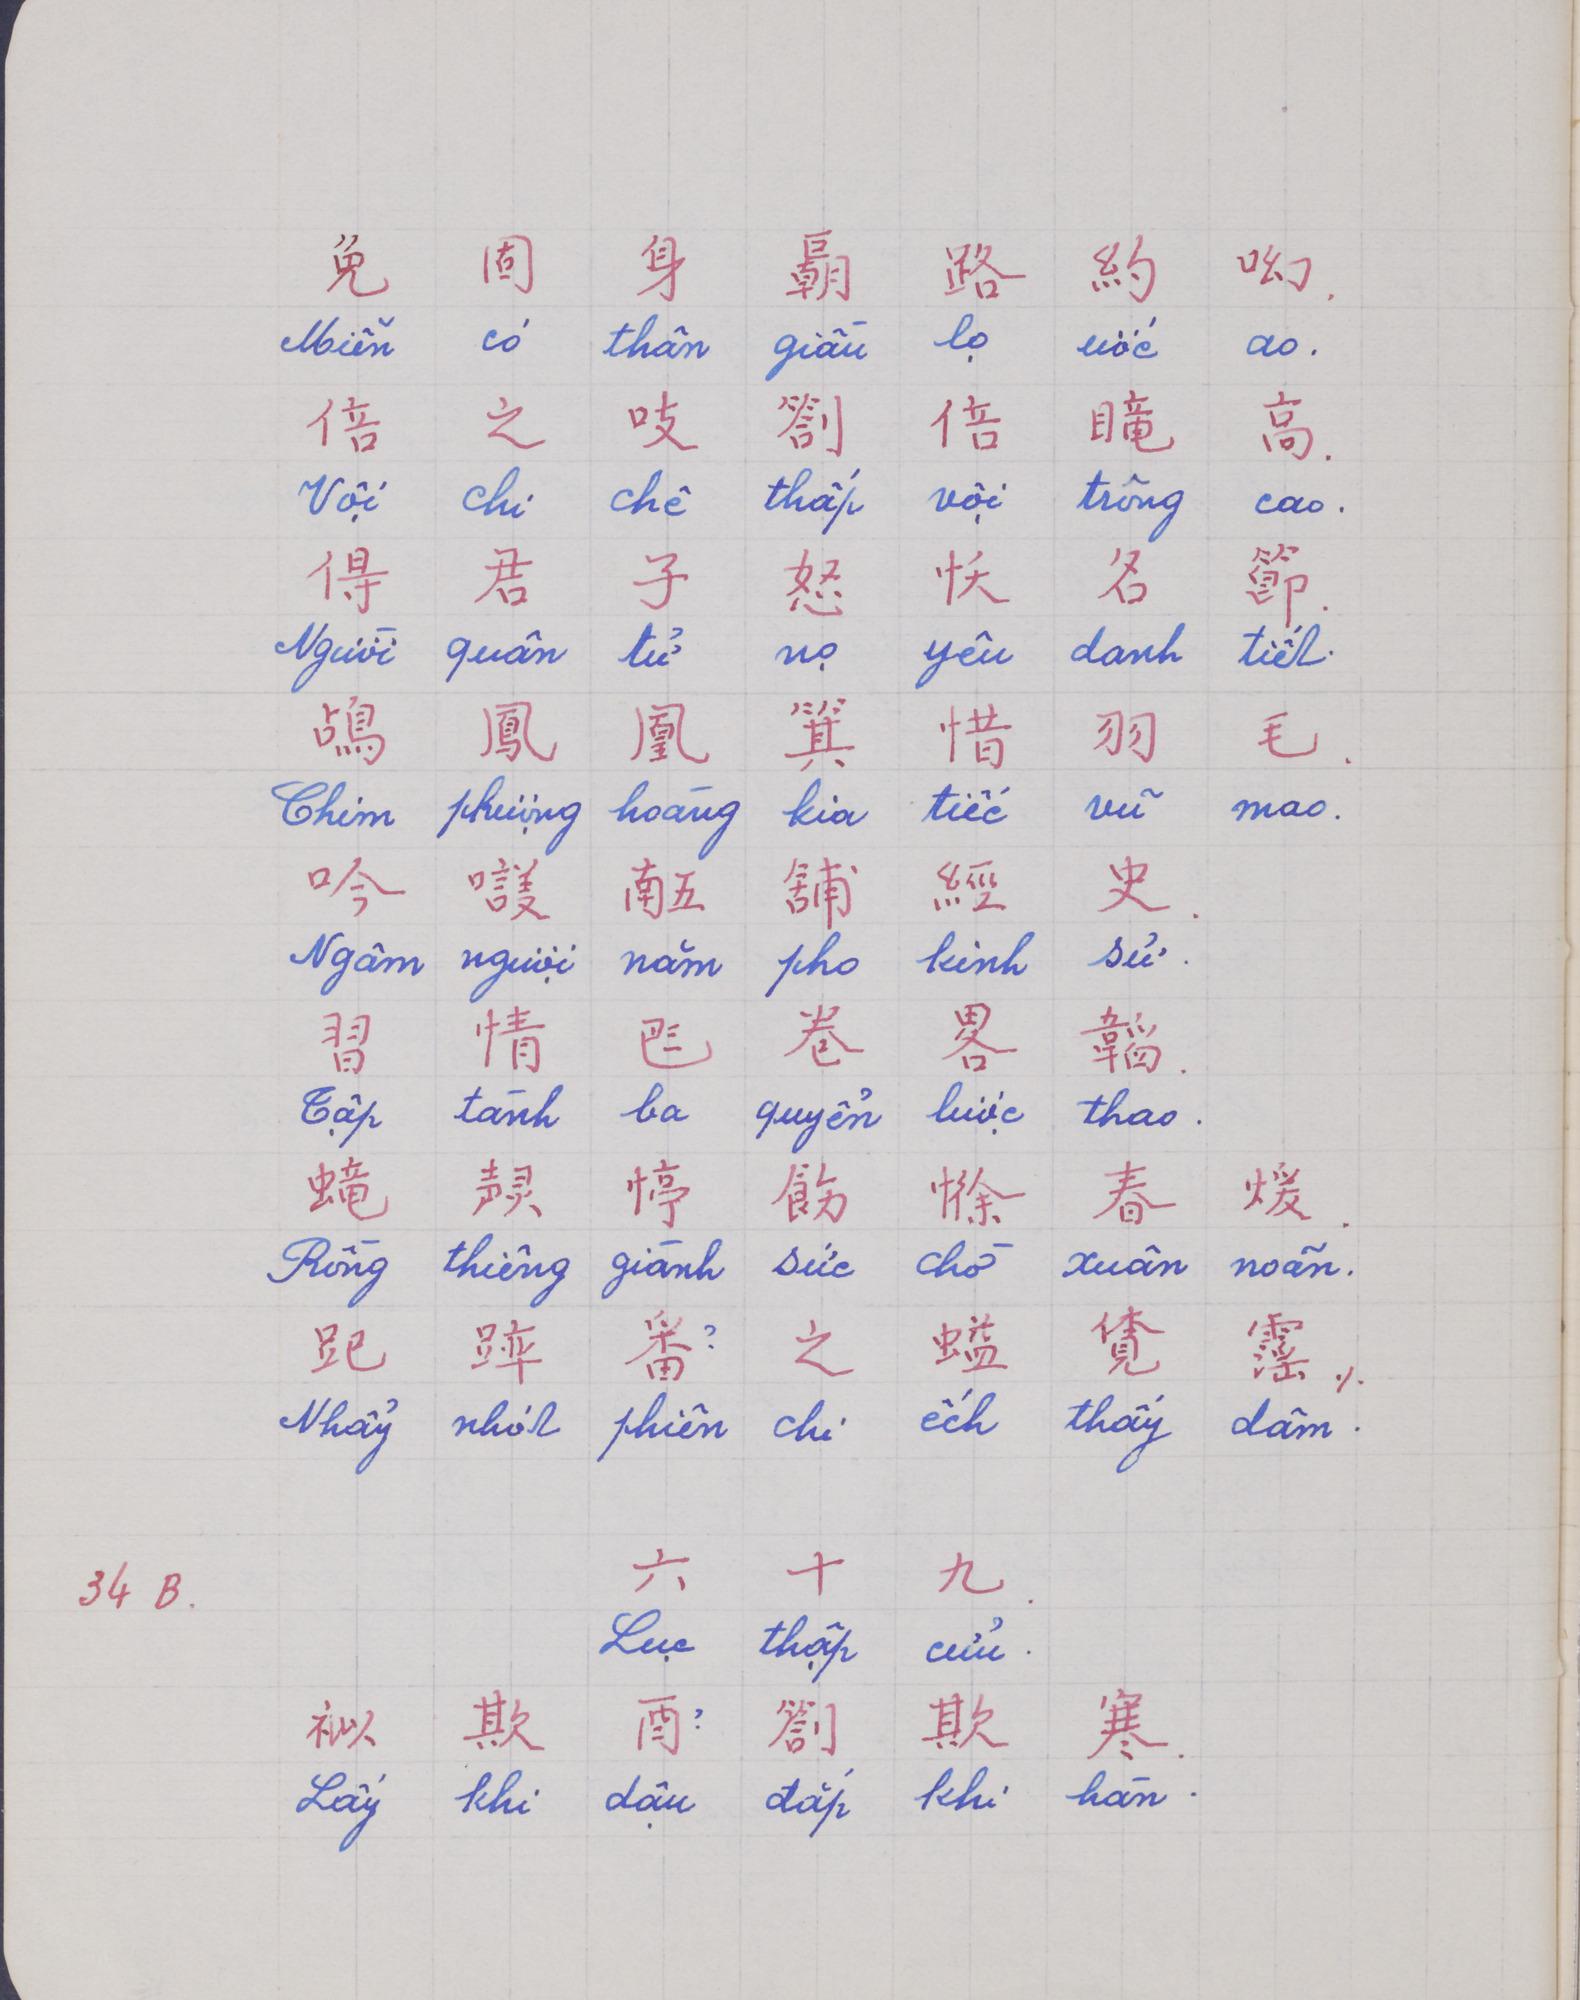 免 固 身 覇 路 約 呦.
Miễn có thân giầu lọ ước ao.
倍 之 吱 劄 倍 𥊣 高.
Vội chi chê thấp vội trông cao.
得 君 子 怒 㤇 名 節.
Người quân tử nọ yêu danh tiết.
鴣 鳳 凰 箕 惜 羽 毛.
Chim phượng hoàng kia tiếc vũ mao.
吟 𠾕 𠄼 舖 經 史.
Ngâm người năm pho kinh sử.
習 情 𠀧 卷 畧 韜.
Tập tành ba quyển lược thao.
𧏵 𤍌 停 飭 𢠿 春 煖.
Rồng thiêng giành sức chờ xuân noãn.
跁 踤 番? 之 𧋉 覓 霪 ٪.
Nhẩy nhót phiên chi ếch thấy dâm.
34 B.
六 十 九.
Lục thập cửu.
𥙩 欺 酉? 劄 欺 寒.
Lấy khi dậu đắp khi hàn.